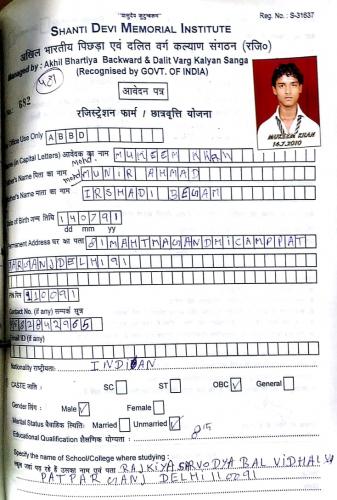 "वसुधैव कुटुम्बकम्"
Reg. No. : S-31637
SHANTI DEVI MEMORIAL INSTITUTE
अखिल भारतीय पिछड़ा एवं दलित वर्ग कल्याण संगठन (रजि०)
Managed by : Akhil Bhartiya Backward & Dalit Varg Kalyan Sanga
(Recognised by GOVT. OF INDIA)
आवेदन पत्र
No.: 682
रजिस्ट्रेशन फार्म / छात्रवृत्ति योजना
MUKEEM KHAN
16.7.2010
Office Use Only A B B D
Name (in Capital Letters) आवेदक का नाम Mohd. MUKEEM KHAN
Father's Name पिता का नाम Mohd MUNIR AHMAD
Mother's Name माता का नाम IRSHADI BEGAM
Date of Birth जन्म तिथि 140791
dd mm yy
Permanent Address घर का पता 91 MAHTMAGANDHICAMPPAT
PARGANJ DELHI 91
पिन Pin 110091
Contact No. (if any) सम्पर्क सूत्र
Email ID (if any)
Nationality राष्ट्रीयता: INDIAN
CASTE जाति : SC ST OBC ✓ General
Gender लिंग : Male ✓ Female
Marital Status वैवाहिक स्थिति: Married Unmarried ✓
Educational Qualification शैक्षणिक योग्यता : 8th
Specify the name of School/College where studying :
स्कूल जहां पढ़ रहे हैं उसका नाम एवं पता RAJKIYA SARVODYA BAL VIDHALYA
PATPARGANJ DELHI 110091